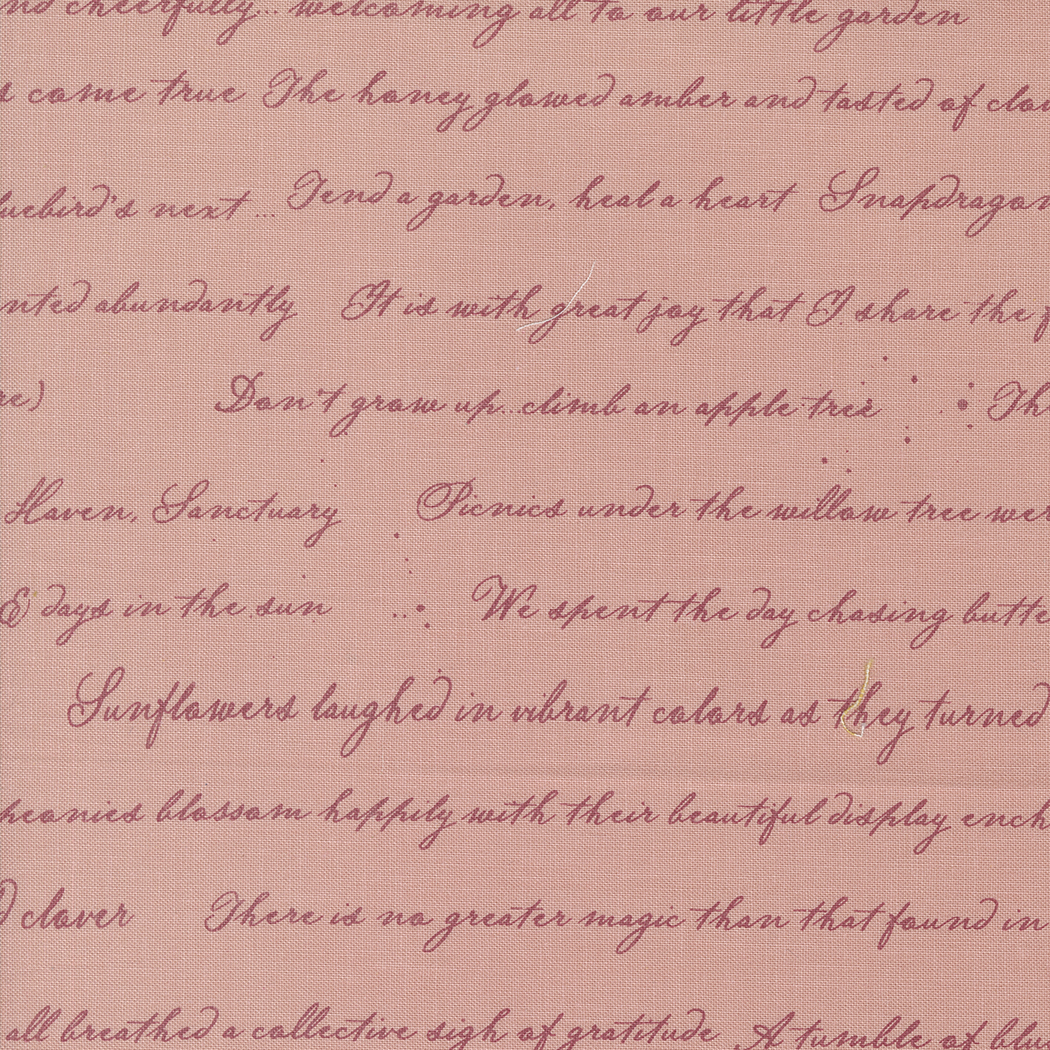 nd cheerfully... welcoming all to our little garden
s come true The honey glowed amber and tasted of clov
luebird's next ... Tend a garden, heal a heart Snapdragon
nted abundantly It is with great joy that I share the f
re) Don't grow up...climb an apple tree Th
Haven, Sanctuary Picnics under the willow tree wer
& days in the sun We spent the day chasing butte
Sunflowers laughed in vibrant colors as they turned
peonies blossom happily with their beautiful display ench
d clover There is no greater magic than that found in
all breathed a collective sigh of gratitude A tumble of blu